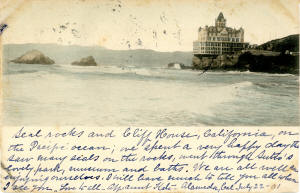 Seal rocks and Cliff House, California, on
the Pacific ocean; we spent a very happy day then
saw many seals on the rocks, went through Sutro's
lovely park, museum and baths. We are all well
enjoying ourselves. I will have much to tell you all when
I see you. Love to all. Aff. aunt Kate. Alameda, Cal. July 22-01